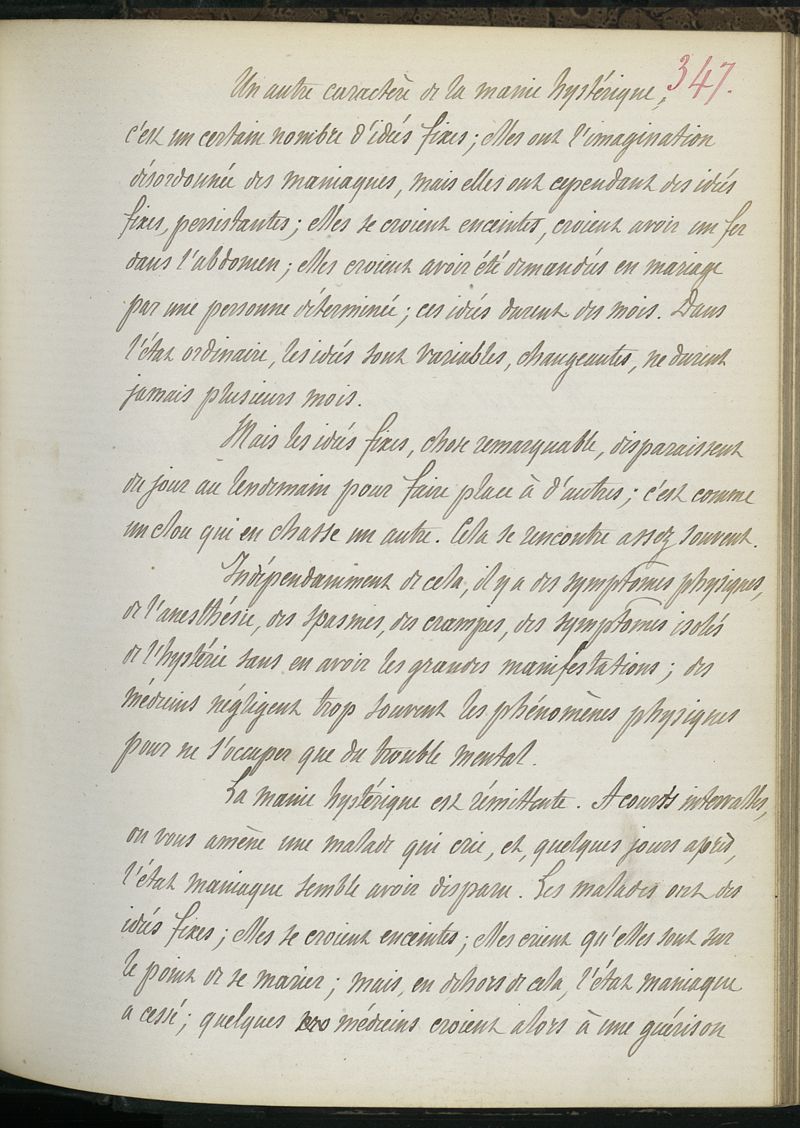 347.
Un autre caractère de la manie hystérique,
c'est un certain nombre d'idées fixes; elles ont l'imagination
désordonnée des maniaques, mais elles ont cependant des idées
fixes, persistantes; elles se croient enceintes, croient avoir un fer
dans l'abdomen; elles croient avoir été demandées en mariage
par une personne déterminée; ces idées durent des mois. Dans
l'état ordinaire, les idées sont variables, changeantes, ne durent
jamais plusieurs mois.
Mais les idées fixes, chose remarquable, disparaissent
du jour au lendemain pour faire place à d'autres; c'est comme
un clou qui en chasse un autre. Cela se rencontre assez souvent.
Indépendamment de cela, il y a des symptômes physiques,
de l'anesthésie, des spasmes, des crampes, des symptômes isolés
de l'hystérie sans en avoir les grandes manifestations; des
médecins négligent trop souvent les phénomènes physiques
pour ne s'occuper que du trouble mental.
La manie hystérique est rémittente. A courts intervalles,
on vous amène une malade qui crie, et, quelques jours après,
l'état maniaque semble avoir disparu. Les malades ont des
idées fixes; elles se croient enceintes; elles crient qu'elles sont sur
le point de se marier; mais, en dehors de cela, l'état maniaque
a cessé; quelques médecins croient alors à une guérison